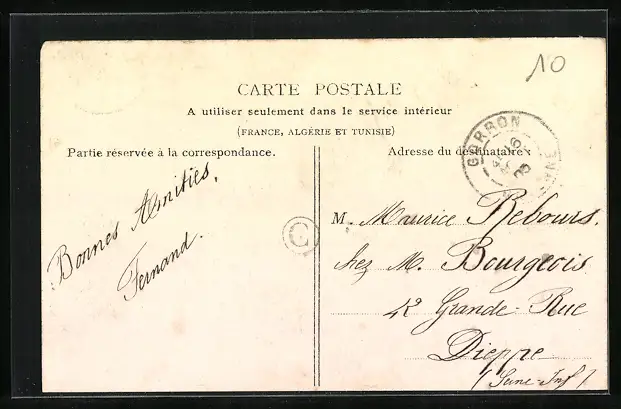 10
CARTE POSTALE
A utiliser seulement dans le service intérieur
(FRANCE, ALGÉRIE ET TUNISIE)
Partie réservée à la correspondance.
Adresse du destinataire
GORRON
Bonnes Amitiés,
Fernand.
C
M. Maurice Rebours.
chez M. Bourgeois
42 Grande-Rue
Dieppe
(Seine-Inf.)